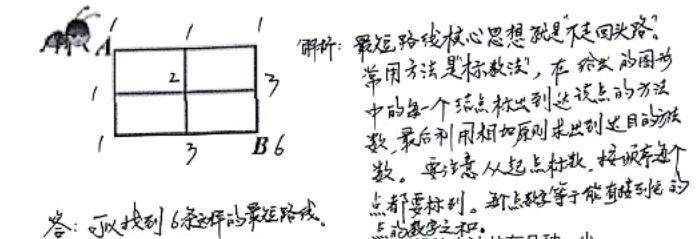 1 1 1
A
解析：最短路线核心思想就是"不走回头路"。
常用方法是"标数法"，在给出的图形
1 2 3
中的每一个结点标出到达该点的方法
数，最后利用相加原则求出到达目的方法
1 3 B 6
数。要注意从起点标数，按顺序每个
点都要标到。新点数字等于能直接到它的
点的数字之和。
答：可以找到6条这样的最短路线。